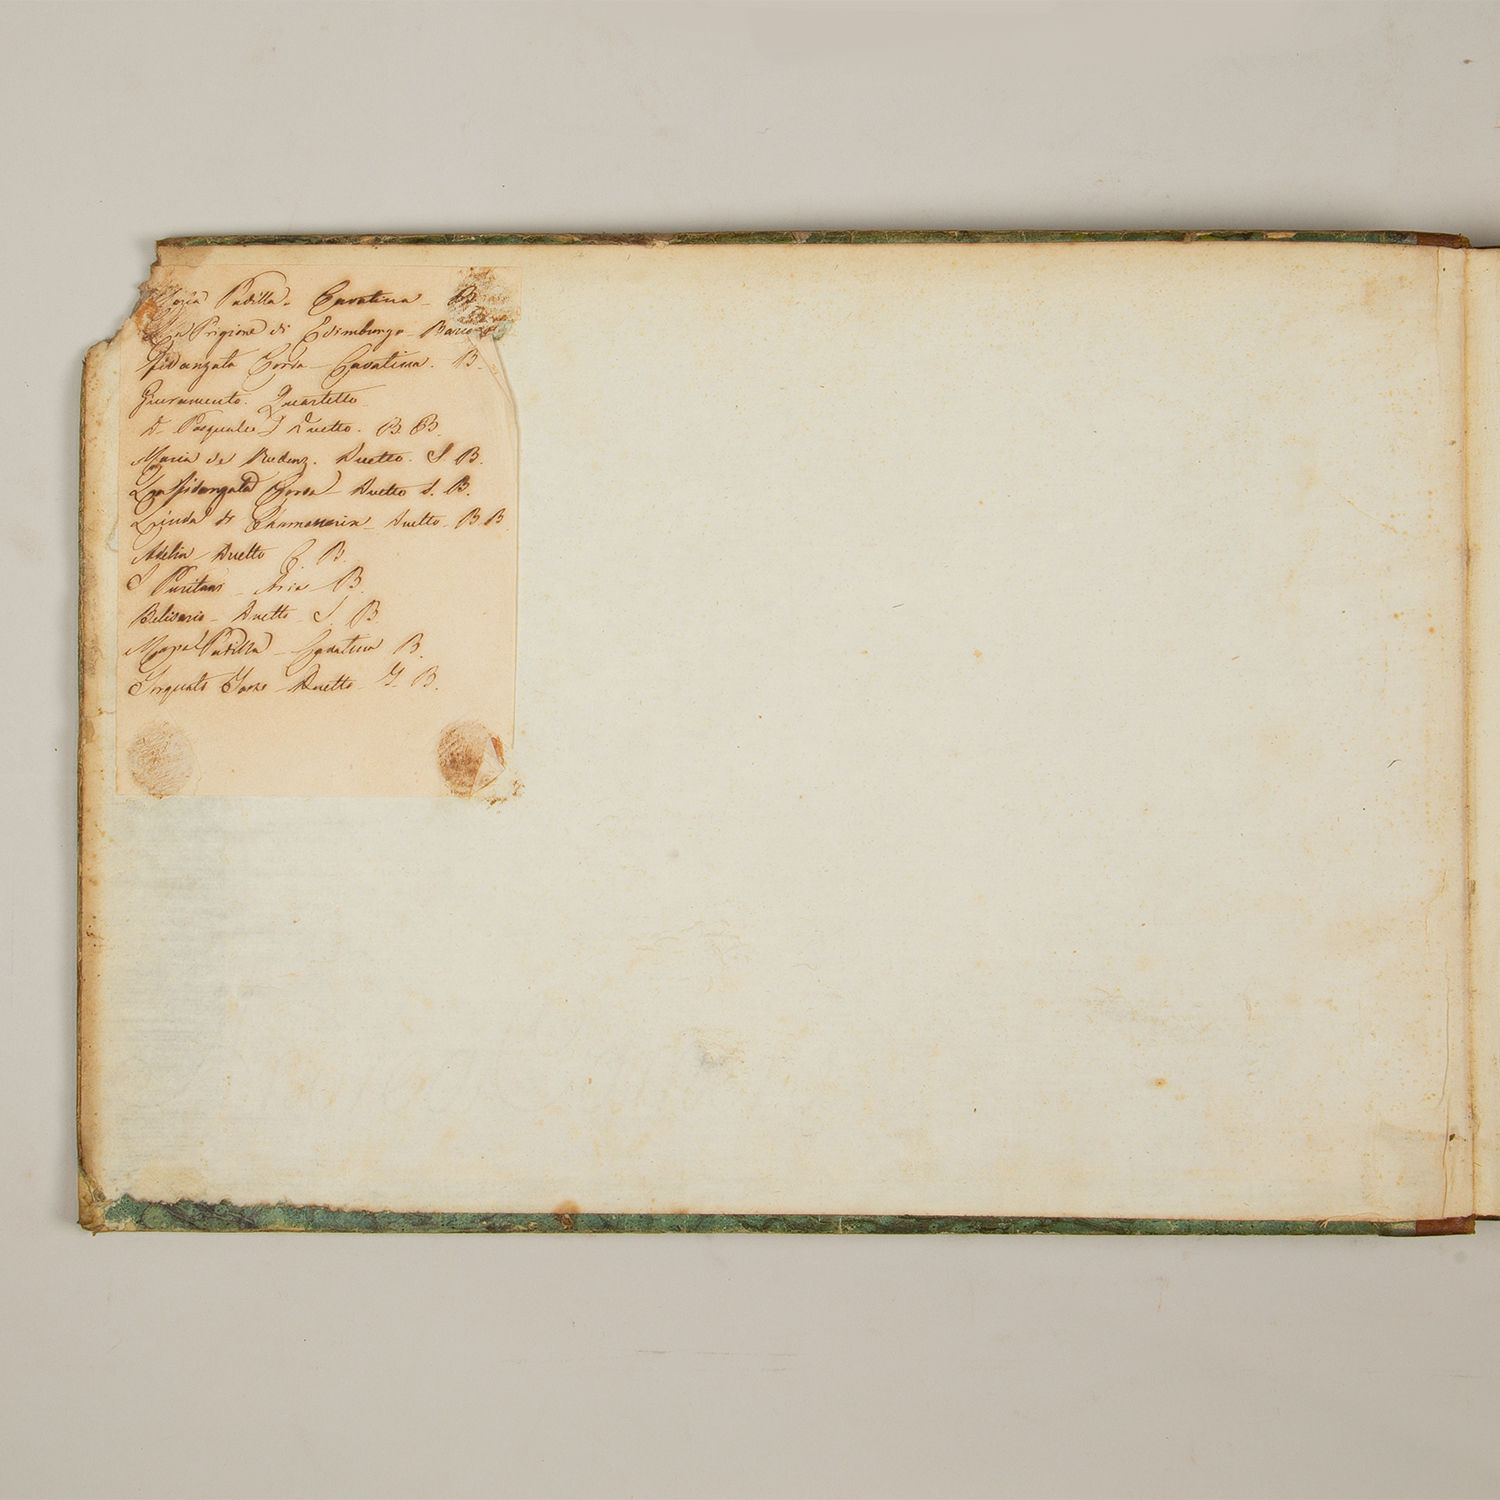 Maria Padilla - Cavatina - B
La Prigione di Edimburgo - Barca
Fidanzata Corsa - Cavatina. B.
Giuramento. Quartetto
D. Pasquale Duetto. B. B.
Maria de Rudenz. Duetto. S B.
La Fidanzata Corsa - Duetto S. B.
Linda di Chamounix - Duetto. B B.
Adelia - Duetto B.
I Puritani - Aria B.
Belisario - Duetto - S. B.
Maria Padilla - Cavatina B.
Torquato Tasso Duetto B.